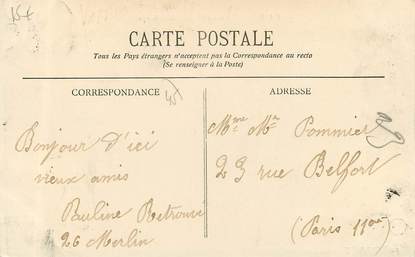 15€
CARTE POSTALE
Tous les Pays étrangers n'acceptent pas la Correspondance au recto
(Se renseigner à la Poste)
CORRESPONDANCE
ADRESSE
Bonjour d'ici
vieux amis
Pauline
26 Merlin
Mme Mr Pommier
23 rue Belfort
(Paris 11ème)